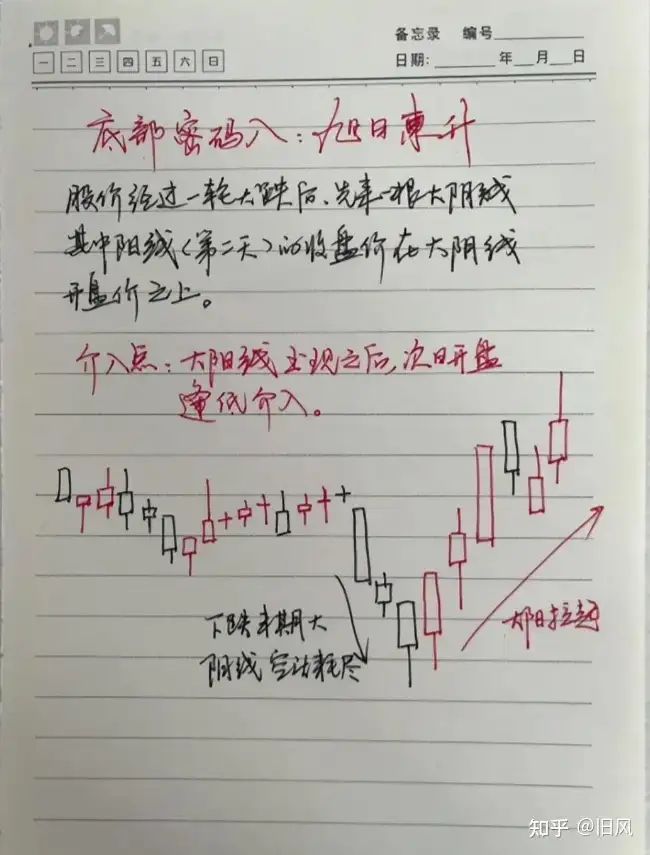 备忘录 编号
一 二 三 四 五 六 日
日期: 年 月 日
底部密码八:旭日東升
股价经过一轮大跌后、先来一根大阴线
其中阳线(第二天)的收盘价在大阴线
开盘价之上。
介入点:大阳线出现之后,次日开盘
逢低介入。
下跌末期大
阴线空头耗尽
拉起
知乎 @旧风